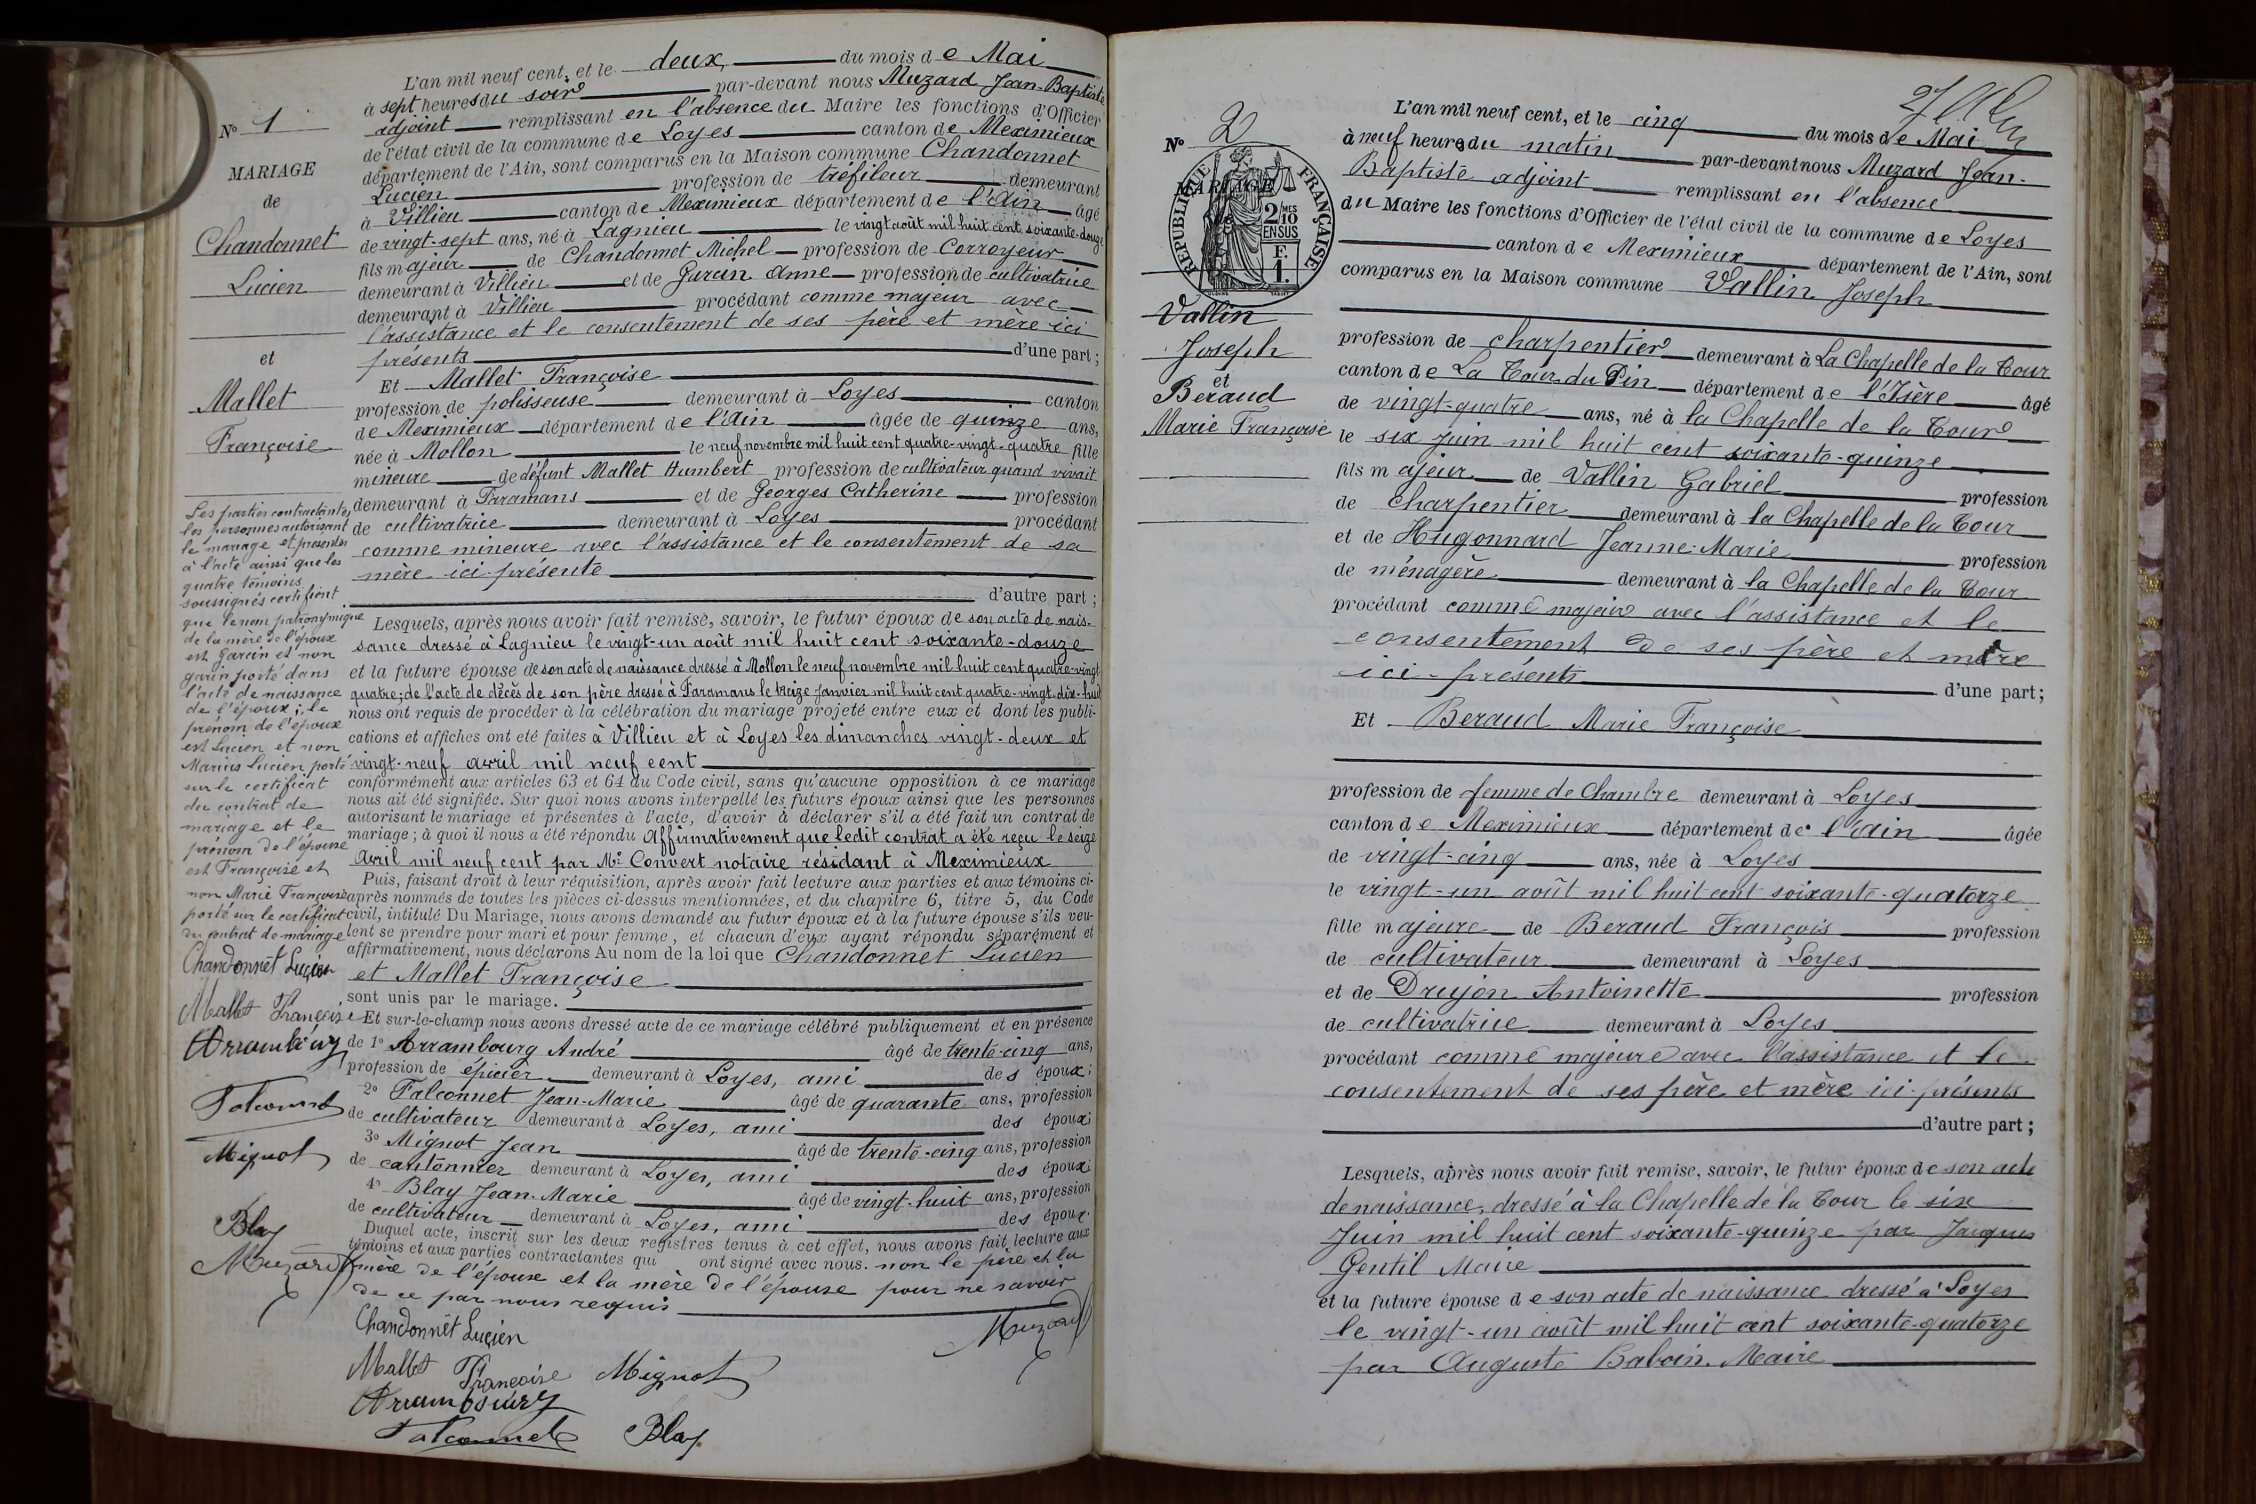 L'an mil neuf cent, et le deux, du mois de Mai
à sept heures du soir par-devant nous Muzard Jean-Baptiste
adjoint remplissant en l'absence du Maire les fonctions d'Officier
de l'état civil de la commune de Loyes canton de Meximieux
département de l'Ain, sont comparus en la Maison commune Chandonnet
Lucien profession de tréfileur demeurant
à Villieu canton de Meximieux département de l'Ain âgé
de vingt-sept ans, né à Lagnieu le vingt août mil huit cent soixante-douze
fils majeur de Chandonnet Michel profession de Corroyeur
demeurant à Villieu et de Garcin Anne profession de cultivatrice
demeurant à Villieu procédant comme majeur avec
l'assistance et le consentement de ses père et mère ici
présents d'une part ;
Et Mallet Françoise
profession de polisseuse demeurant à Loyes canton
de Meximieux département de l'Ain âgée de quinze ans,
née à Mollon le neuf novembre mil huit cent quatre-vingt-quatre fille
mineure de défunt Mallet Humbert profession de cultivateur quand vivait
demeurant à Faramans et de Georges Catherine profession
de cultivatrice demeurant à Loyes procédant
comme mineure avec l'assistance et le consentement de sa
mère ici présente
d'autre part ;
Lesquels, après nous avoir fait remise, savoir, le futur époux de son acte de nais-
sance dressé à Lagnieu le vingt-un août mil huit cent soixante-douze
et la future épouse de son acte de naissance dressé à Mollon le neuf novembre mil huit cent quatre-vingt
quatre; de l'acte de décès de son père dressé à Faramans le treize janvier mil huit cent quatre-vingt-dix-huit
nous ont requis de procéder à la célébration du mariage projeté entre eux et dont les publi-
cations et affiches ont été faites à Villieu et à Loyes les dimanches vingt-deux et
vingt-neuf avril mil neuf cent
conformément aux articles 63 et 64 du Code civil, sans qu'aucune opposition à ce mariage
nous ait été signifiée. Sur quoi nous avons interpellé les futurs époux ainsi que les personnes
autorisant le mariage et présentes à l'acte, d'avoir à déclarer s'il a été fait un contrat de
mariage ; à quoi il nous a été répondu Affirmativement que ledit contrat a été reçu le seize
Avril mil neuf cent par Me Convert notaire résidant à Meximieux
Puis, faisant droit à leur réquisition, après avoir fait lecture aux parties et aux témoins ci-
après nommés de toutes les pièces ci-dessus mentionnées, et du chapitre 6, titre 5, du Code
civil, intitulé Du Mariage, nous avons demandé au futur époux et à la future épouse s'ils veu-
lent se prendre pour mari et pour femme, et chacun d'eux ayant répondu séparément et
affirmativement, nous déclarons Au nom de la loi que Chandonnet Lucien
et Mallet Françoise
sont unis par le mariage.
Et sur-le-champ nous avons dressé acte de ce mariage célébré publiquement et en présence
de 1° Arrambourg André âgé de trente-cinq ans,
profession de épicier demeurant à Loyes, ami des époux;
2° Falconnet Jean-Marie âgé de quarante ans, profession
de cultivateur demeurant à Loyes, ami des époux;
3° Mignot Jean âgé de trente-cinq ans, profession
de cantonnier demeurant à Loyes, ami des époux;
4° Blay Jean-Marie âgé de vingt-huit ans, profession
de cultivateur demeurant à Loyes, ami des époux.
Duquel acte, inscrit sur les deux registres tenus à cet effet, nous avons fait lecture aux
témoins et aux parties contractantes qui ont signé avec nous. non le père et la
mère de l'époux et la mère de l'épouse pour ne savoir
de ce par nous requis
Chandonnet Lucien
Muzard
Mallet Françoise Mignot
Arrambourg
Falconnet Blay
N° 1
MARIAGE
de
Chandonnet
Lucien
et
Mallet
Françoise
Les parties contractantes,
les personnes autorisant
le mariage et présentes
à l'acte ainsi que les
quatre témoins
soussignés certifient
que le nom patronymique
de la mère de l'époux
est Garcin et non
garin porté dans
l'acte de naissance
de l'époux; le
prénom de l'époux
est Lucien et non
Marius Lucien porté
sur le certificat
du contrat de
mariage et le
prénom de l'épouse
est Françoise et
non Marie Françoise
porté sur le certificat
du contrat de mariage
Chandonnet Lucien
Mallet Françoise
Arrambourg
Falconnet
Mignot
Blay
Muzard
27
N° 2
MARIAGE
RÉPUBLIQUE FRANÇAISE
2/10 MES
EN SUS
F.
1.
Vallin
Joseph
et
Beraud
Marie Françoise
L'an mil neuf cent, et le cinq du mois de Mai
à neuf heures du matin par-devant nous Muzard Jean-
Baptiste adjoint remplissant en l'absence
du Maire les fonctions d'Officier de l'état civil de la commune de Loyes
canton de Meximieux département de l'Ain, sont
comparus en la Maison commune Vallin Joseph
profession de charpentier demeurant à La Chapelle de la Tour
canton de La Tour-du-Pin département de l'Isère âgé
de vingt-quatre ans, né à la Chapelle de la Tour
le six juin mil huit cent soixante-quinze
fils majeur de Vallin Gabriel profession
de charpentier demeurant à la Chapelle de la Tour
et de Hugonnard Jeanne-Marie profession
de ménagère demeurant à la Chapelle de la Tour
procédant comme majeur avec l'assistance et le
consentement de ses père et mère
ici présents d'une part ;
Et Beraud Marie Françoise
profession de femme de Chambre demeurant à Loyes
canton de Meximieux département de l'Ain âgée
de vingt-cinq ans, née à Loyes
le vingt-un août mil huit cent soixante-quatorze
fille majeure de Beraud François profession
de cultivateur demeurant à Loyes
et de Drujon Antoinette profession
de cultivatrice demeurant à Loyes
procédant comme majeure avec l'assistance et le
consentement de ses père et mère ici présents
d'autre part ;
Lesquels, après nous avoir fait remise, savoir, le futur époux de son acte
de naissance, dressé à la Chapelle de la Tour le six
Juin mil huit cent soixante-quinze par Jacques
Gentil Maire
et la future épouse de son acte de naissance dressé à Loyes
le vingt-un août mil huit cent soixante-quatorze
par Auguste Maire